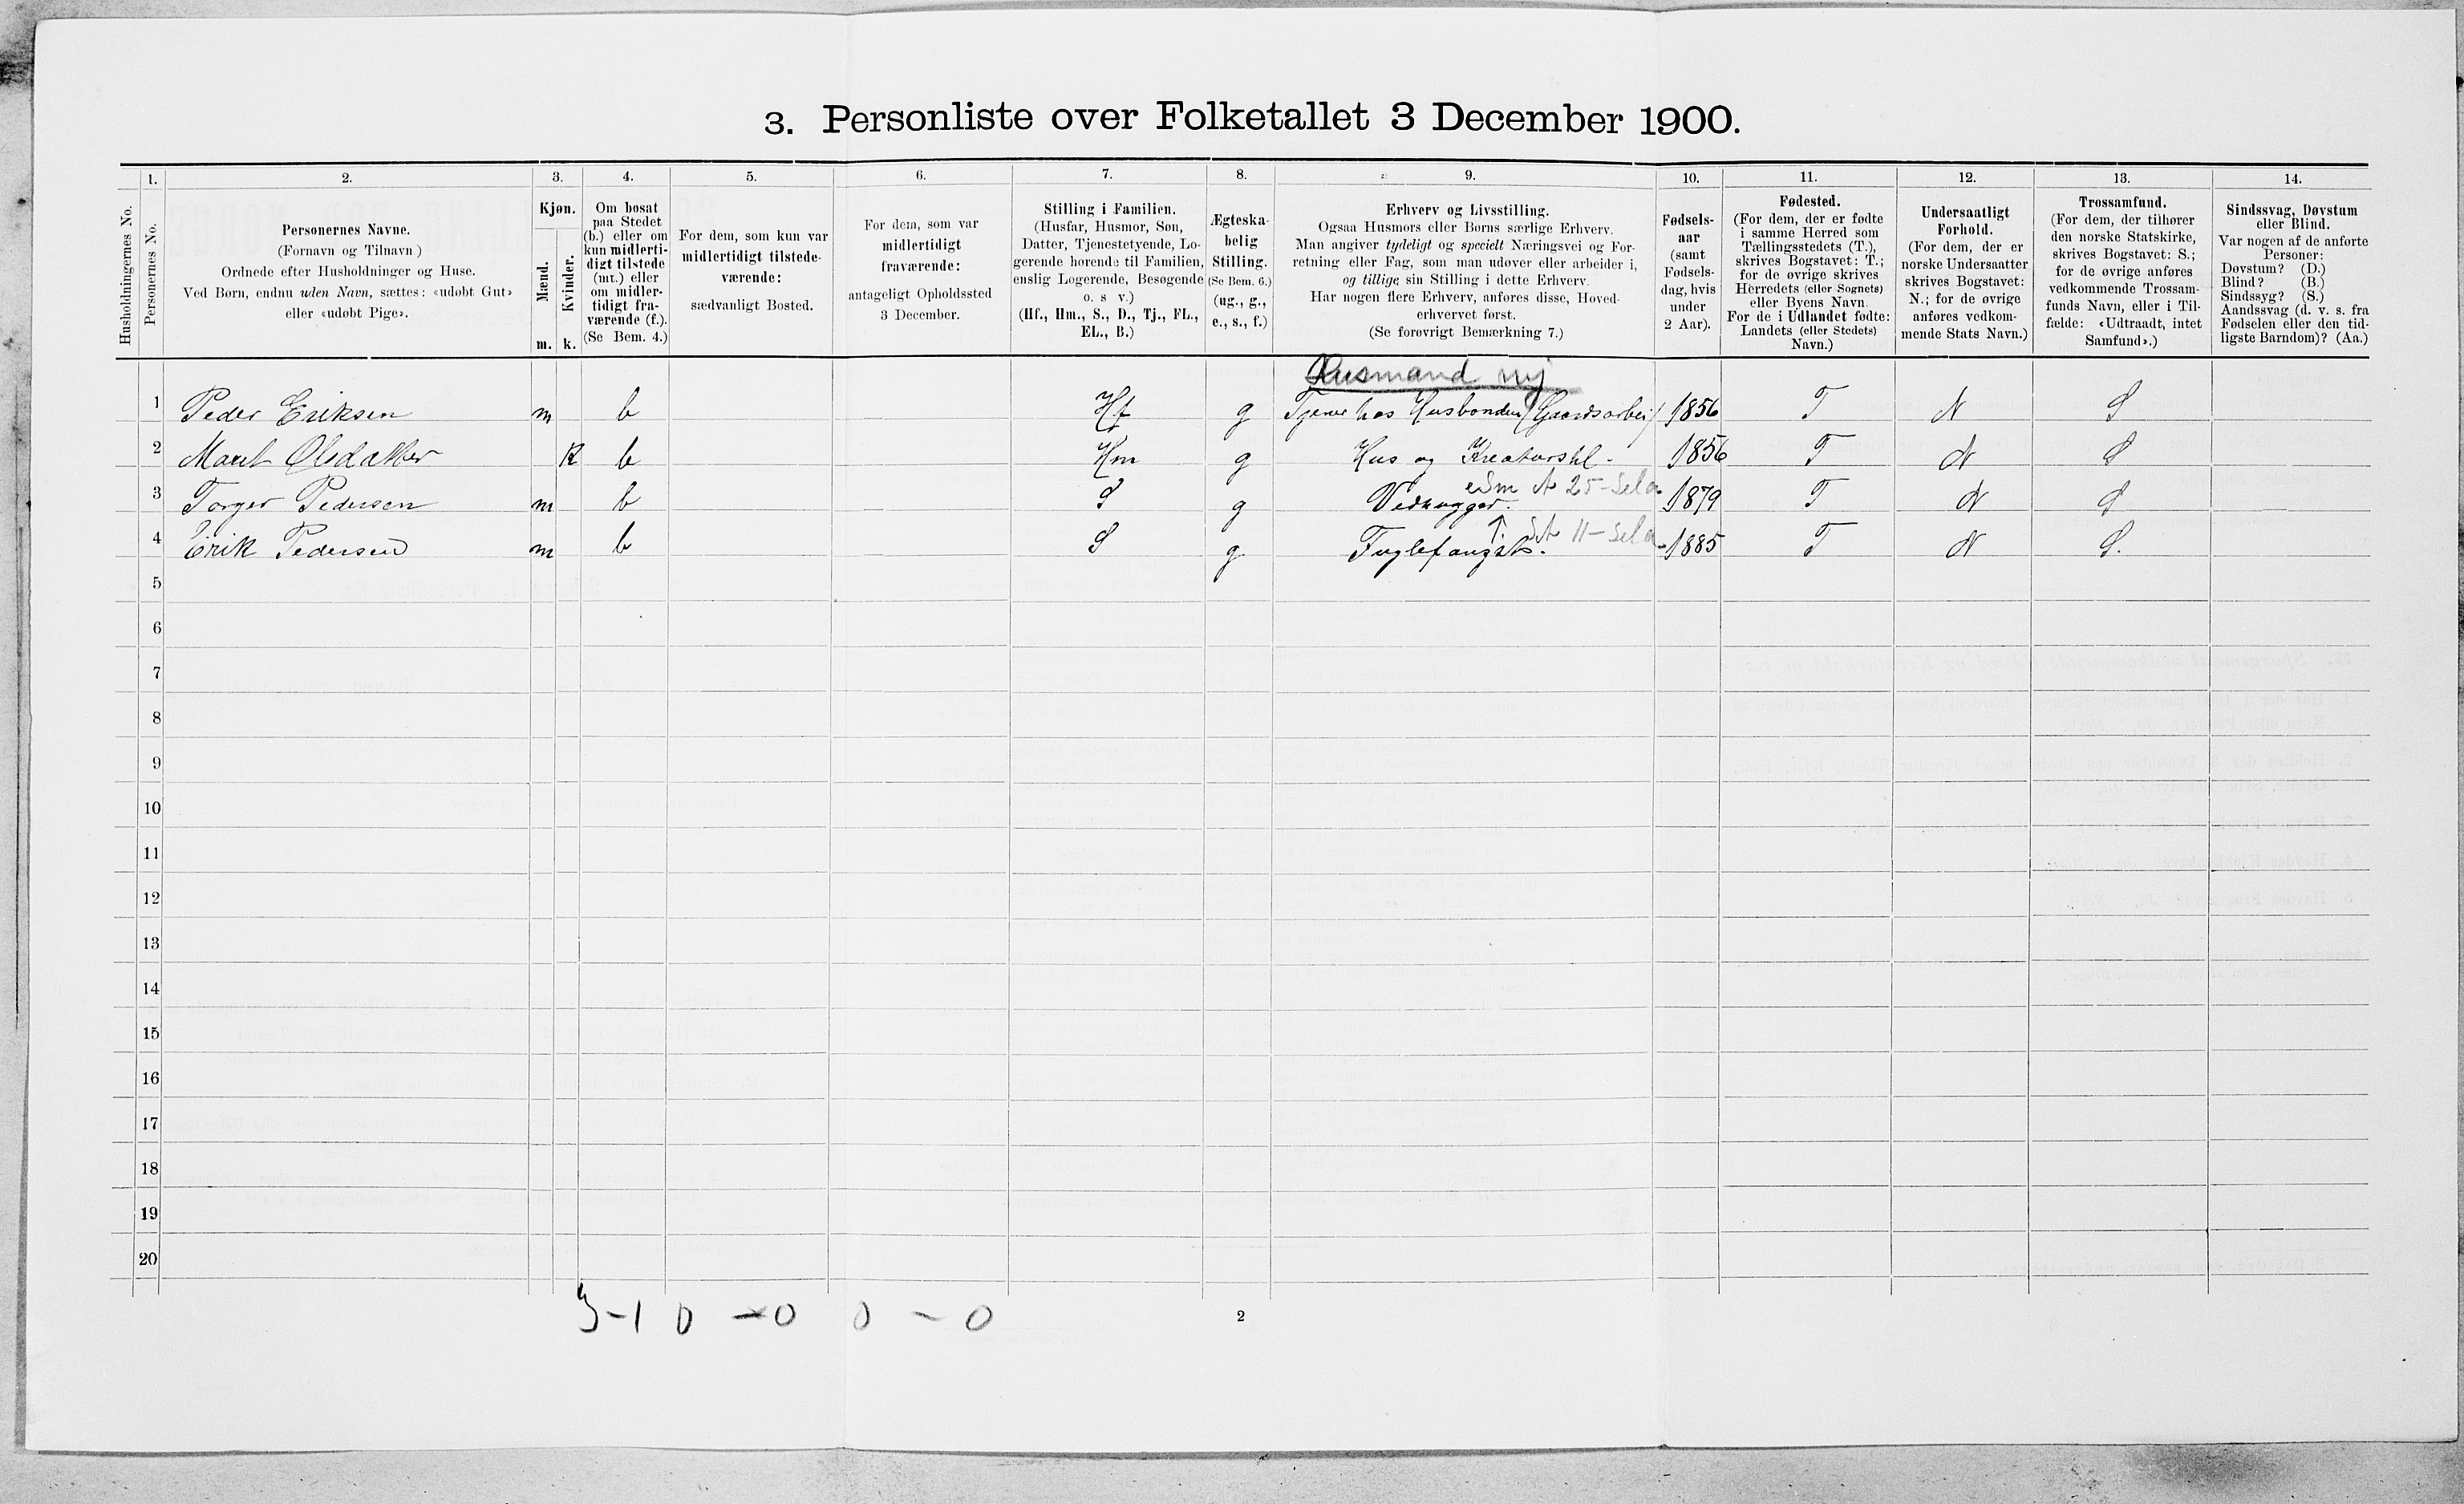 3. Personliste over Folketallet 3 December 1900.
1. 2. 3. 4. 5. 6. 7. 8. 9. 10. 11. 12. 13. 14.
Husholdningernes No.
Personernes No.
Personernes Navne.
(Fornavn og Tilnavn)
Ordnede efter Husholdninger og Huse.
Ved Børn, endnu uden Navn, sættes: «udøbt Gut»
eller «udøbt Pige».
Kjøn.
Mænd.
Kvinder.
m. k.
Om bosat
paa Stedet
(b.) eller om
kun midlerti-
digt tilstede
(mt.) eller
om midler-
tidigt fra-
værende (f.).
(Se Bem. 4.)
For dem, som kun var
midlertidigt tilstede-
værende:
sædvanligt Bosted.
For dem, som var
midlertidigt
fraværende:
antageligt Opholdssted
3 December.
Stilling i Familien.
(Husfar, Husmor, Søn,
Datter, Tjenestetyende, Lo-
gerende hørende til Familien,
enslig Logerende, Besøgende
o. s v.)
(Hf., Hm., S., D., Tj., FL.,
EL., B.)
Ægteska-
belig
Stilling.
(Se Bem. 6.)
(ug., g.,
e., s., f.)
Erhverv og Livsstilling.
Ogsaa Husmors eller Børns særlige Erhverv.
Man angiver tydeligt og specielt Næringsvei og For-
retning eller Fag, som man udøver eller arbeider i,
og tillige sin Stilling i dette Erhverv.
Har nogen flere Erhverv, anføres disse, Hoved-
erhvervet først.
(Se forøvrigt Bemærkning 7.)
Fødsels-
aar
(samt
Fødsels-
dag, hvis
under
2 Aar).
Fødested.
(For dem, der er fødte
i samme Herred som
Tællingsstedets (T.),
skrives Bogstavet: T.;
for de øvrige skrives
Herredets (eller Sognets)
eller Byens Navn.
For de i Udlandet fødte:
Landets (eller Stedets)
Navn.)
Undersaatligt
Forhold.
(For dem, der er
norske Undersaatter
skrives Bogstavet:
N.; for de øvrige
anføres vedkom-
mende Stats Navn.)
Trossamfund.
(For dem, der tilhører
den norske Statskirke,
skrives Bogstavet: S.;
for de øvrige anføres
vedkommende Trossam-
funds Navn, eller i Til-
fælde: «Udtraadt, intet
Samfund».)
Sindssvag, Døvstum
eller Blind.
Var nogen af de anførte
Personer:
Døvstum? (D.)
Blind? (B.)
Sindssyg? (S.)
Aandssvag (d. v. s. fra
Fødselen eller den tid-
ligste Barndom)? (Aa.)
Husmand
1 Peder Eriksen m b Hf g Tjener hos Husbonden (Gaardsarbei) 1856 T N S
2 Marit Olsdatter K b Hm g Hus og Kreaturstel. 1856 T N S
3 Torger Pedersen m b S g Vedhugger. 1879 T N S
4 Erik Pedersen m b S g Fuglefangst. 1885 T N S.
5
6
7
8
9
10
11
12
13
14
15
16
17
18
19
20
3-1 0-0 0-0
2